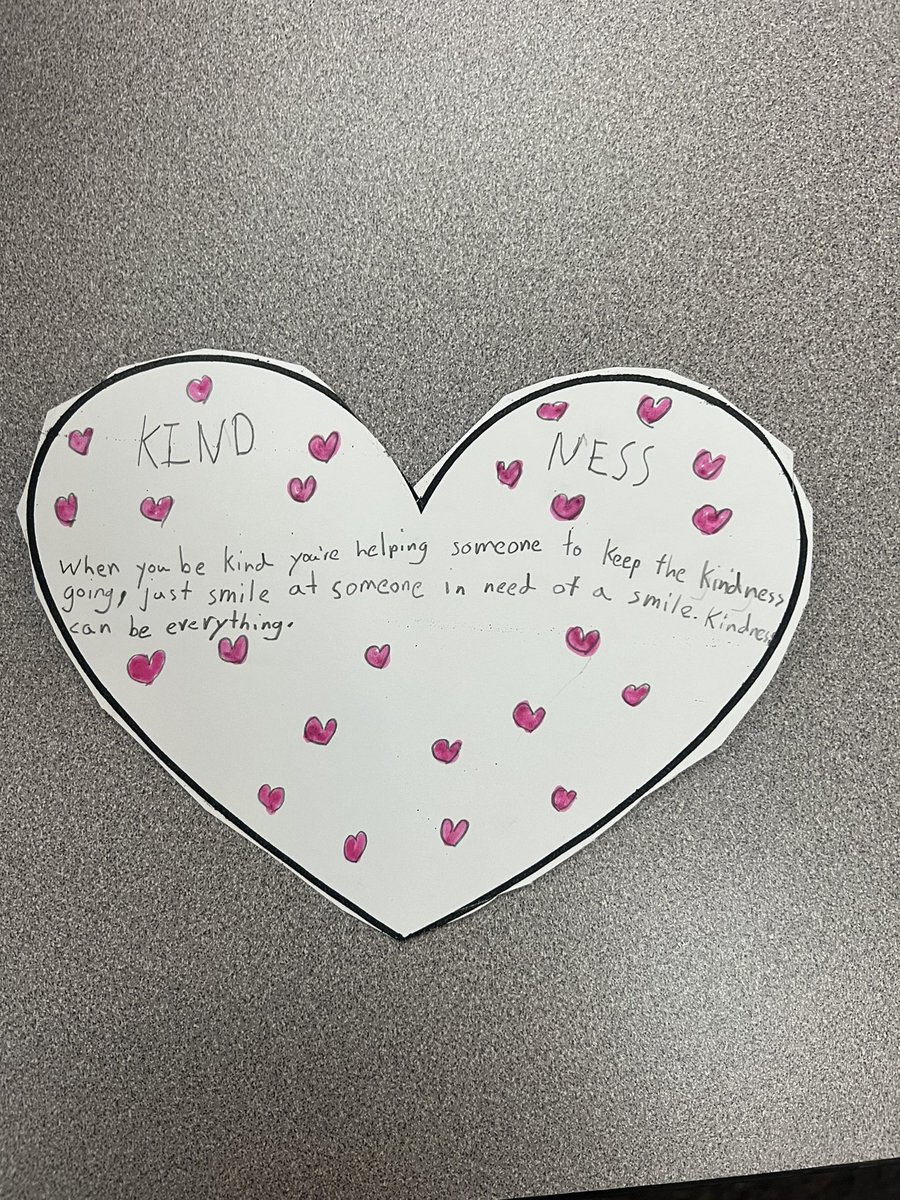 KIND NESS
When you be kind you're helping someone to keep the kindness
going, just smile at someone in need of a smile. Kindness
can be everything.